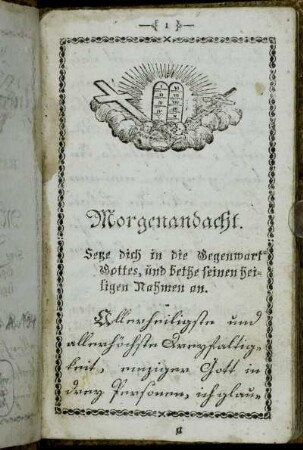 1
Morgenandacht.
Setze dich in die Gegenwart
Gottes, und bethe seinen hei-
ligen Nahmen an.
Allerheiligste und
allerhöchste Dreyfaltig-
keit, einziger Gott in
drey Personen, ich glau-
a